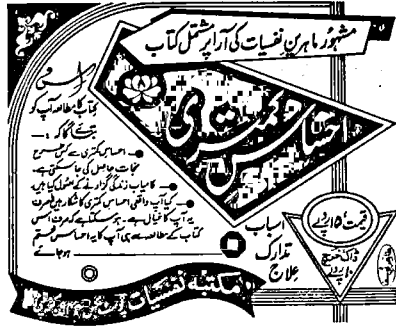 مشہور ماہرین نفسیات کی آرا پر مشتمل کتاب
احساس کمتری
اس
کتاب کا مطالعہ آپ کو
بتائے گا کہ :—
احساس کمتری سے کس طرح
نجات حاصل کی جا سکتی ہے۔
کامیاب زندگی گزارنے کے اصول کیا ہیں
کیا آپ واقعی احساس کمتری کا شکار ہیں یا صرف
یہ آپ کا خیال ہے۔ ہو سکتا ہے کہ صرف اس
کتاب کے مطالعہ سے ہی آپ کا یہ احساس ختم
ہو جائے
اسباب
تدارک
علاج
قیمت ۱۵ روپے
ڈاک خرچ
۱۰ روپے
مکتبہ نفسیات